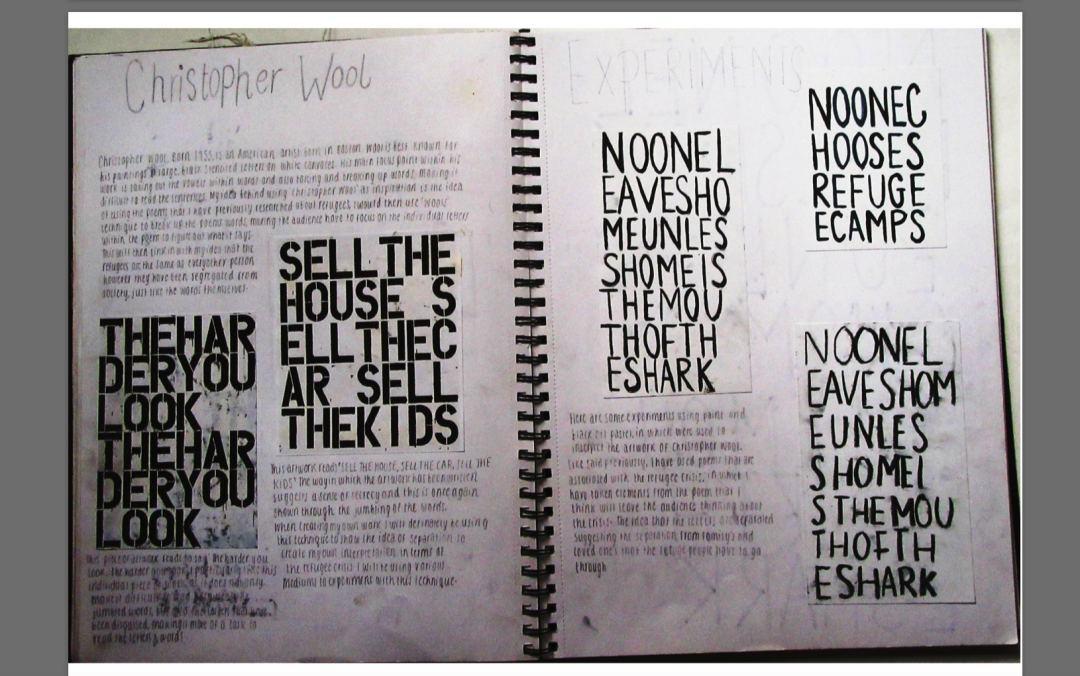 Christopher Wool
Christopher Wool, Born 1955, is an American artist born in Boston. Wool is best known for
his paintings of large, black stenciled letters on white canvases. His main focus point within his
work is taking out the vowels within words and also taking and breaking up words, making it
difficult to read the sentences. My idea behind using Christopher Wool as inspiration is the idea
of using the poems that I have previously researched about refugees, I would then use 'Wools'
technique to break up the poems words, making the audience have to focus on the individual letters
within the poem to figure out what it says.
This will then link in with my idea that the
refugees are the same as every other person
however they have been segregated from
society, just like the words themselves.
SELL THE
HOUSE S
ELL THEC
AR SELL
THEKIDS
THEHAR
DERYOU
LOOK
THEHAR
DERYOU
LOOK
This artwork reads "SELL THE HOUSE, SELL THE CAR, SELL THE
KIDS" The way in which the artwork has been
suggests a sense of secrecy and this is once again
shown through the jumbling of the words.
When creating my own work I will definately be using
this technique to show the idea of separation to
create my own interpretation in terms of
the refugee crisis. I will be using various
mediums to experiment with this technique.
This piece of artwork reads to say 'The harder you
look, the harder you look' this
individual piece
more difficult
jumbled words, but also the letters that have
been disguised, making it more of a task to
read the letters & word!
EXPERIMENTS
NOONEL
EAVESHO
MEUNLES
SHOMEIS
THEMOU
THOFTH
ESHARK
NOONEC
HOOSES
REFUGE
ECAMPS
Here are some experiments using paint and
black oil pastel, in which were used to
interpret the artwork of Christopher Wool.
Like said previously, I have used poems that are
associated with the refugee crisis, in which I
have taken elements from the poem that I
think will leave the audience thinking about
the crisis. The idea that the letters are separated
suggesting the separation from family's and
loved ones that the refugee people have to go
through
NOONEL
EAVESHOM
EUNLES
SHOMEI
STHEMOU
THOFTH
ESHARK